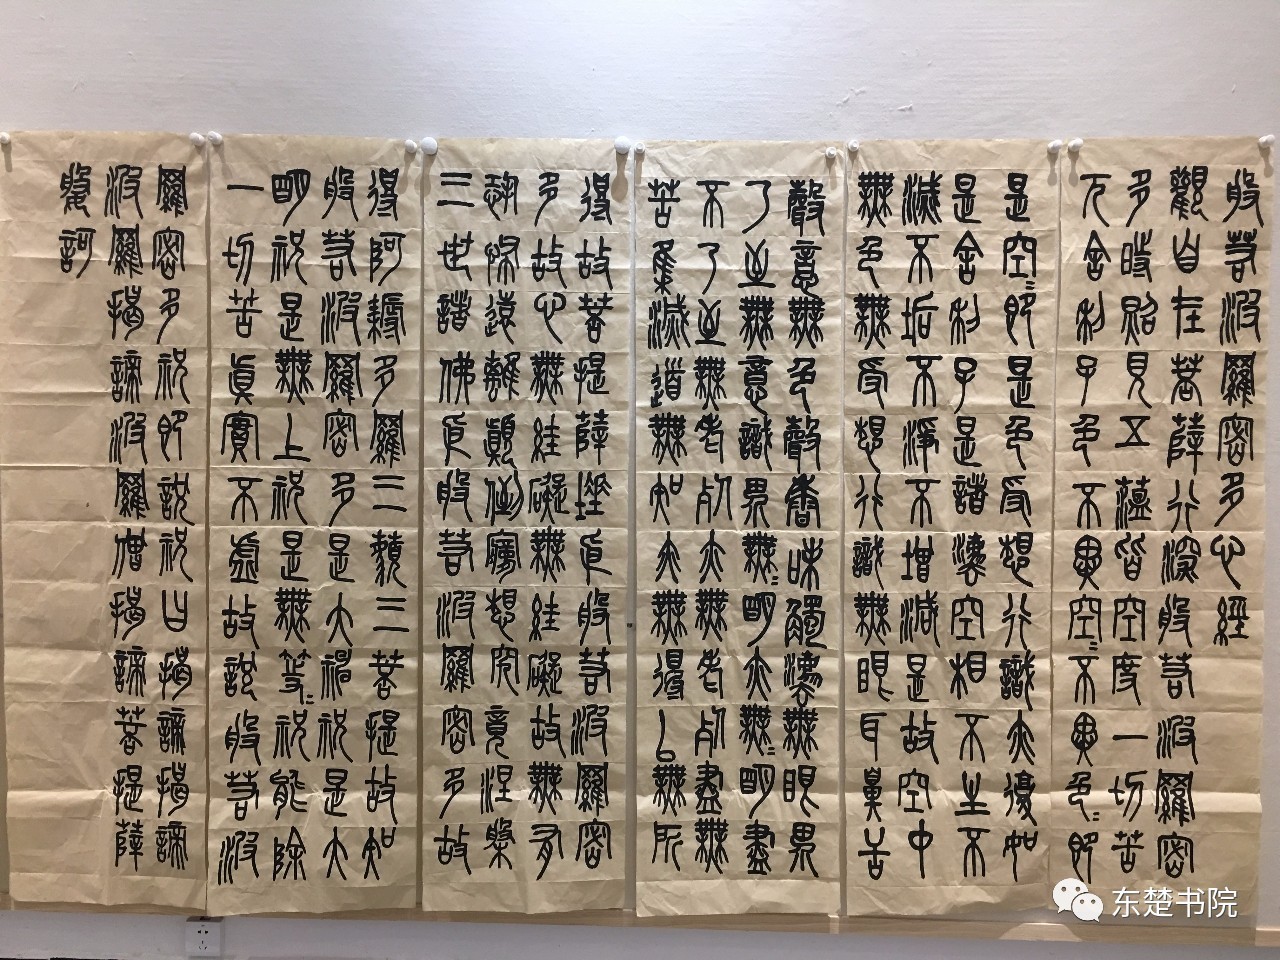 般若波羅密多心經
觀自在菩薩行深般若波羅密
多時照見五蘊皆空度一切苦
厄舍利子色不異空〻不異色〻即
是空〻即是色受想行識亦復如
是舍利子是諸法空相不生不
滅不垢不淨不增減是故空中
無色無受想行識無眼耳鼻舌
聲意無色聲香味觸法無眼界
乃至無意識界無〻明亦無〻明盡
不乃至無老死亦無老死盡無
苦集滅道無知亦無得以無所
得故菩提薩埵依般若波羅密
多故心無罣礙無罣礙故無有
恐怖遠離顛倒夢想究竟涅槃
三世諸佛依般若波羅密多故
得阿耨多羅三藐三菩提故知
般若波羅密多是大神咒是大
明咒是無上咒是無等〻咒能除
一切苦真實不虛故說般若波
羅密多咒即說咒曰揭諦揭諦
波羅揭諦波羅僧揭諦菩提薩
婆訶
东楚书院